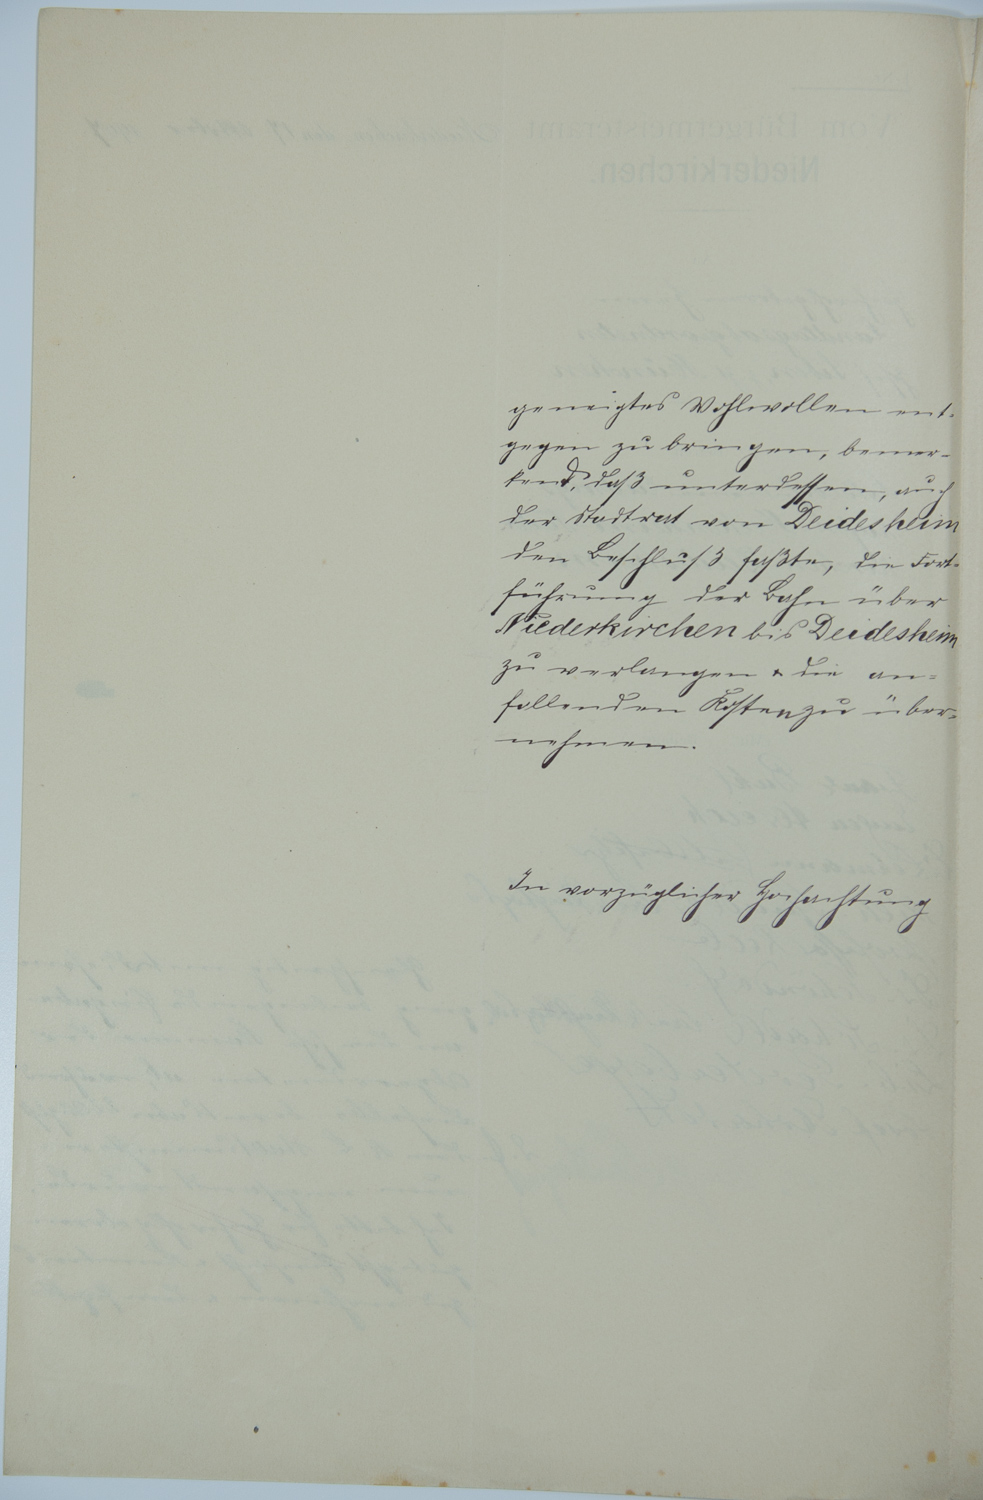 geneigtes Wohlwollen ent-
gegen zu bringen, bemer-
kend, daß unterdessen, auch
der Stadtrat von Deidesheim
den Beschluß faßte, die Fort-
führung der Bahn über
Niederkirchen bis Deidesheim
zu verlangen & die an-
fallenden Kosten zu über-
nehmen.
In vorzüglicher Hochachtung